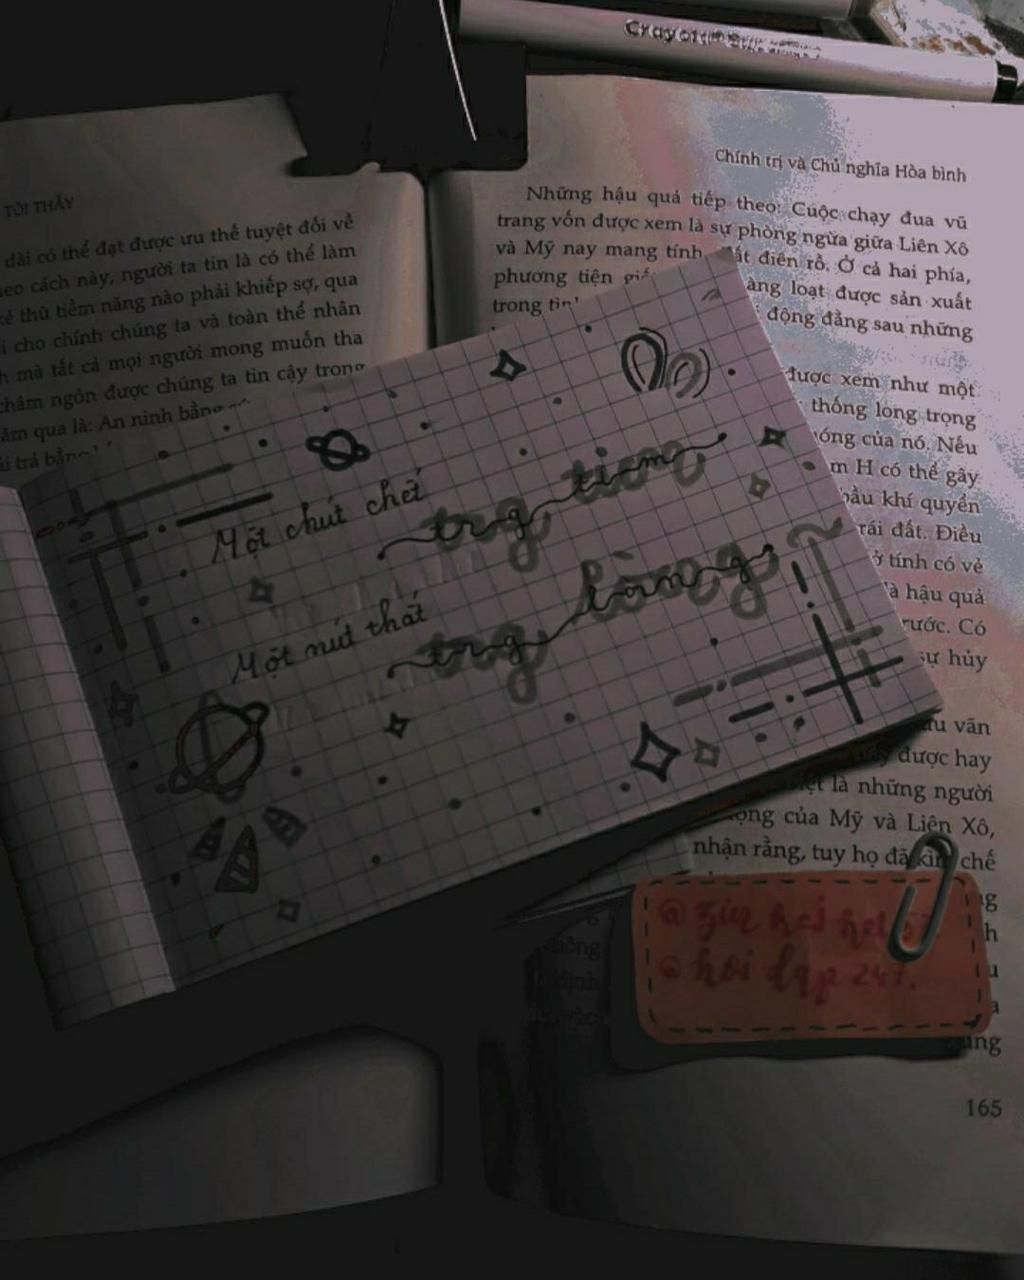 Crayola
TÔI THẤY
dài có thể đạt được ưu thế tuyệt đối về
cách này, người ta tin là có thể làm
kẻ thù tiềm năng nào phải khiếp sợ, qua
cho chính chúng ta và toàn thể nhân
mà tất cả mọi người mong muốn tha
châm ngôn được chúng ta tin cậy trong
năm qua là: An ninh bằng
trả bằng
Chính trị và Chủ nghĩa Hòa bình
Những hậu quả tiếp theo: Cuộc chạy đua vũ
trang vốn được xem là sự phòng ngừa giữa Liên Xô
và Mỹ nay mang tính điên rồ. Ở cả hai phía,
phương tiện loạt được sản xuất
trong động đằng sau những
được xem như một
thống long trọng
của nó. Nếu
H có thể gây
bầu khí quyển
trái đất. Điều
ở tính có vẻ
là hậu quả
trước. Có
sự hủy
Một chút chết
trg tim
Một nút thắt
trg lòng
vãn
được hay
là những người
của Mỹ và Liên Xô,
nhận rằng, tuy họ đã kìm chế
hỏi đáp 247.
165